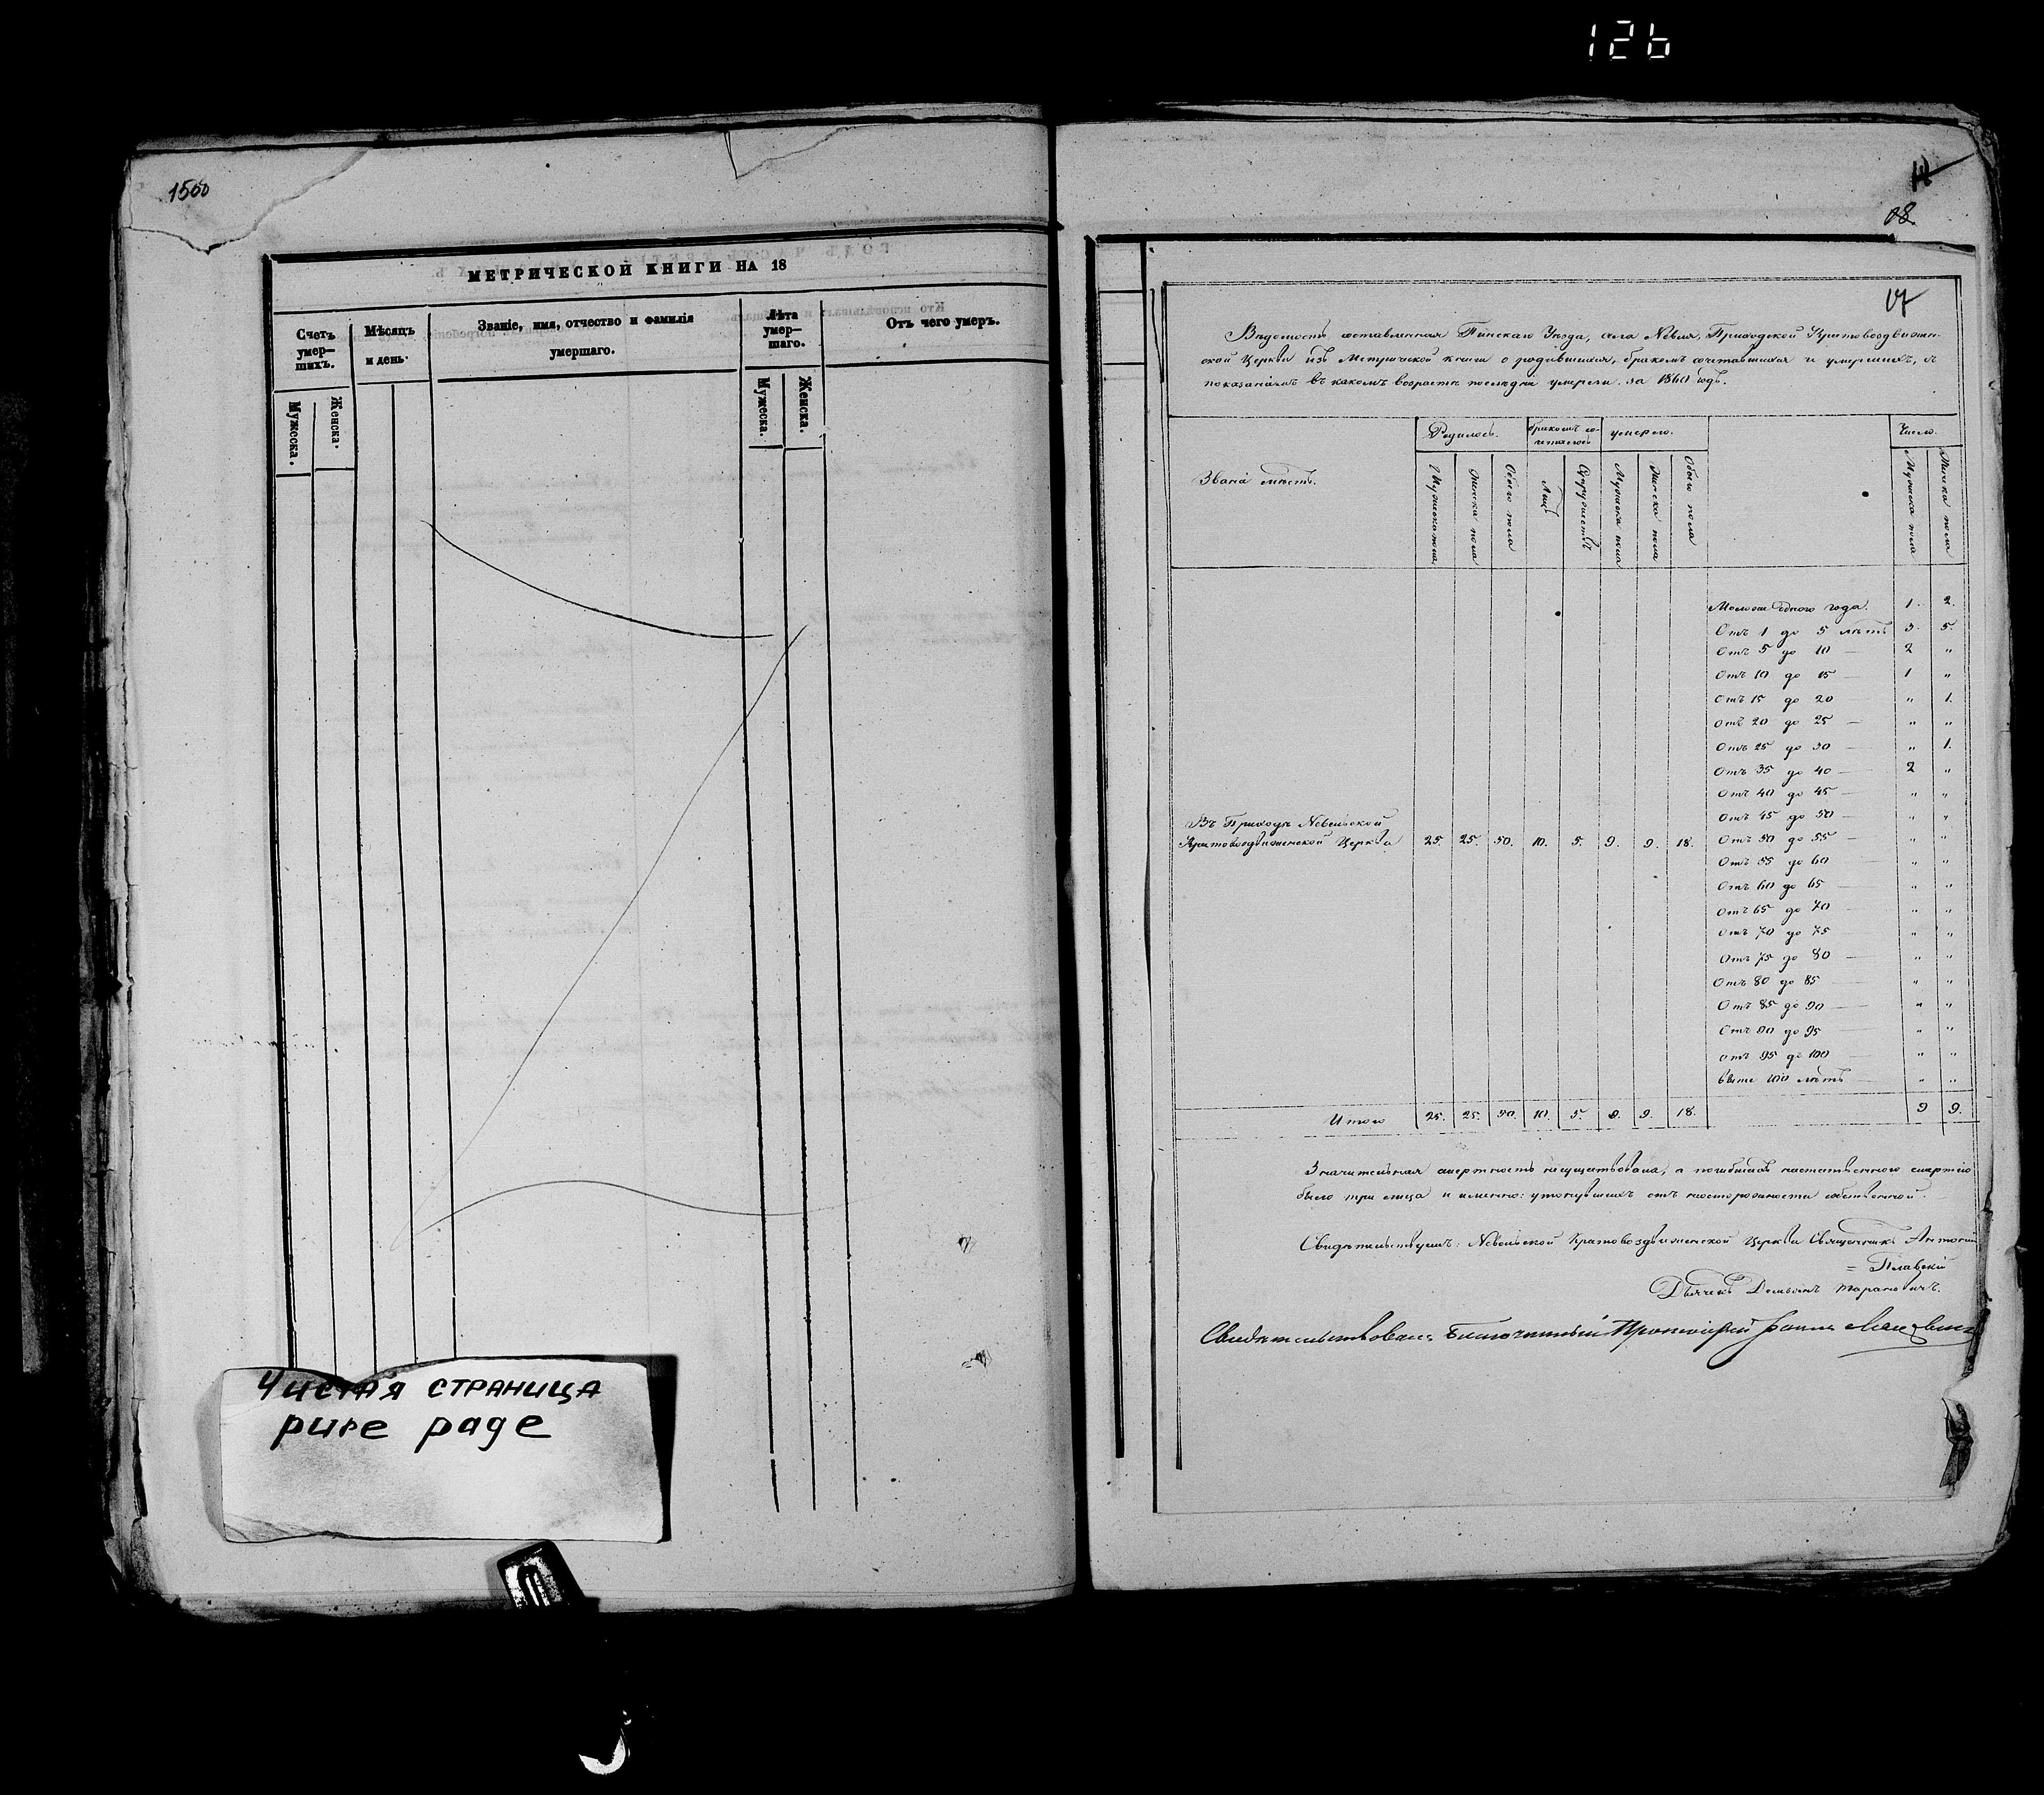 126
1500
МЕТРИЧЕСКОЙ КНИГИ НА 18
Счетъ умер—шихъ.
Мѣсяцъ и день.
Званіе, имя, отчество и фамилія умершаго.
Лѣта умер—шаго.
Отъ чего умеръ.
Мужеска.
Женска.
Мужеска.
Женска.
Чистая страница
pure page
08.
17
Вѣдомость составленная Пинскаго Уѣзда, села Невля, Приходской Крестовоздвижен-
ской Церкви изъ Метрической книги о родившихся, бракомъ сочетавшихся и умершихъ, съ
показаніемъ въ какомъ возрастѣ послѣдніе умерли. за 1860 годъ.
Званіе мѣстъ.
Родилось.
бракомъ со-четалось
умерло.
Число.
Мужеска пола
Женска пола
Обоего пола
Лицъ
Супружествъ
Мужеска пола
Женска пола
Обоего пола
Мужеска пола
Женска пола
Моложе одного года. 1. 2.
Отъ 1 до 5 лѣтъ 3. 5.
Отъ 5 до 10 — 2 "
Отъ 10 до 15 — 1 "
Отъ 15 до 20 " 1.
Отъ 20 до 25 — " "
Отъ 25 до 30 — " 1.
Отъ 35 до 40 — 2 "
Отъ 40 до 45 — " "
Отъ 45 до 50 — " "
Въ Приходѣ Невельской
Крестовоздвиженской Церкви 25. 25. 50. 10. 5. 9. 9. 18. Отъ 50 до 55 — " "
Отъ 55 до 60 — " "
Отъ 60 до 65 — " "
Отъ 65 до 70 — " "
Отъ 70 до 75 — " "
Отъ 75 до 80 — " "
Отъ 80 до 85 — " "
Отъ 85 до 90 — " "
Отъ 90 до 95 — " "
Отъ 95 до 100 — " "
выше 100 лѣтъ — " "
Итого 25. 25. 50. 10. 5. 9. 9. 18. 9 9.
Значительная смертность несуществовала, а погибшихъ неестественною смертію
было три лица и именно: утонувшихъ отъ неосторожности собственной.
Свидѣтельствуемъ: Невельской Крестовоздвиженской Церкви Священникъ Антоній
= Плавскій
Дьячекъ Демьянъ Тарановичъ.
Свидѣтельствовалъ Благочинный Протоіерей